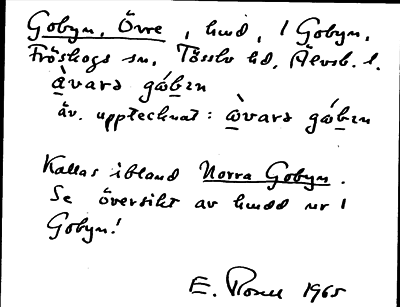 Gobyn, Övre, hmd, i Gobyn,
Fröskogs sn, Tössbo hd, Älvsb. l.
àvarə gǿbɪn
äv. upptecknat: ὼvarə gǿbɪn
Kallas ibland Norra Gobyn.
Se översikt av hmdd nr 1
Gobyn!
E. 1965